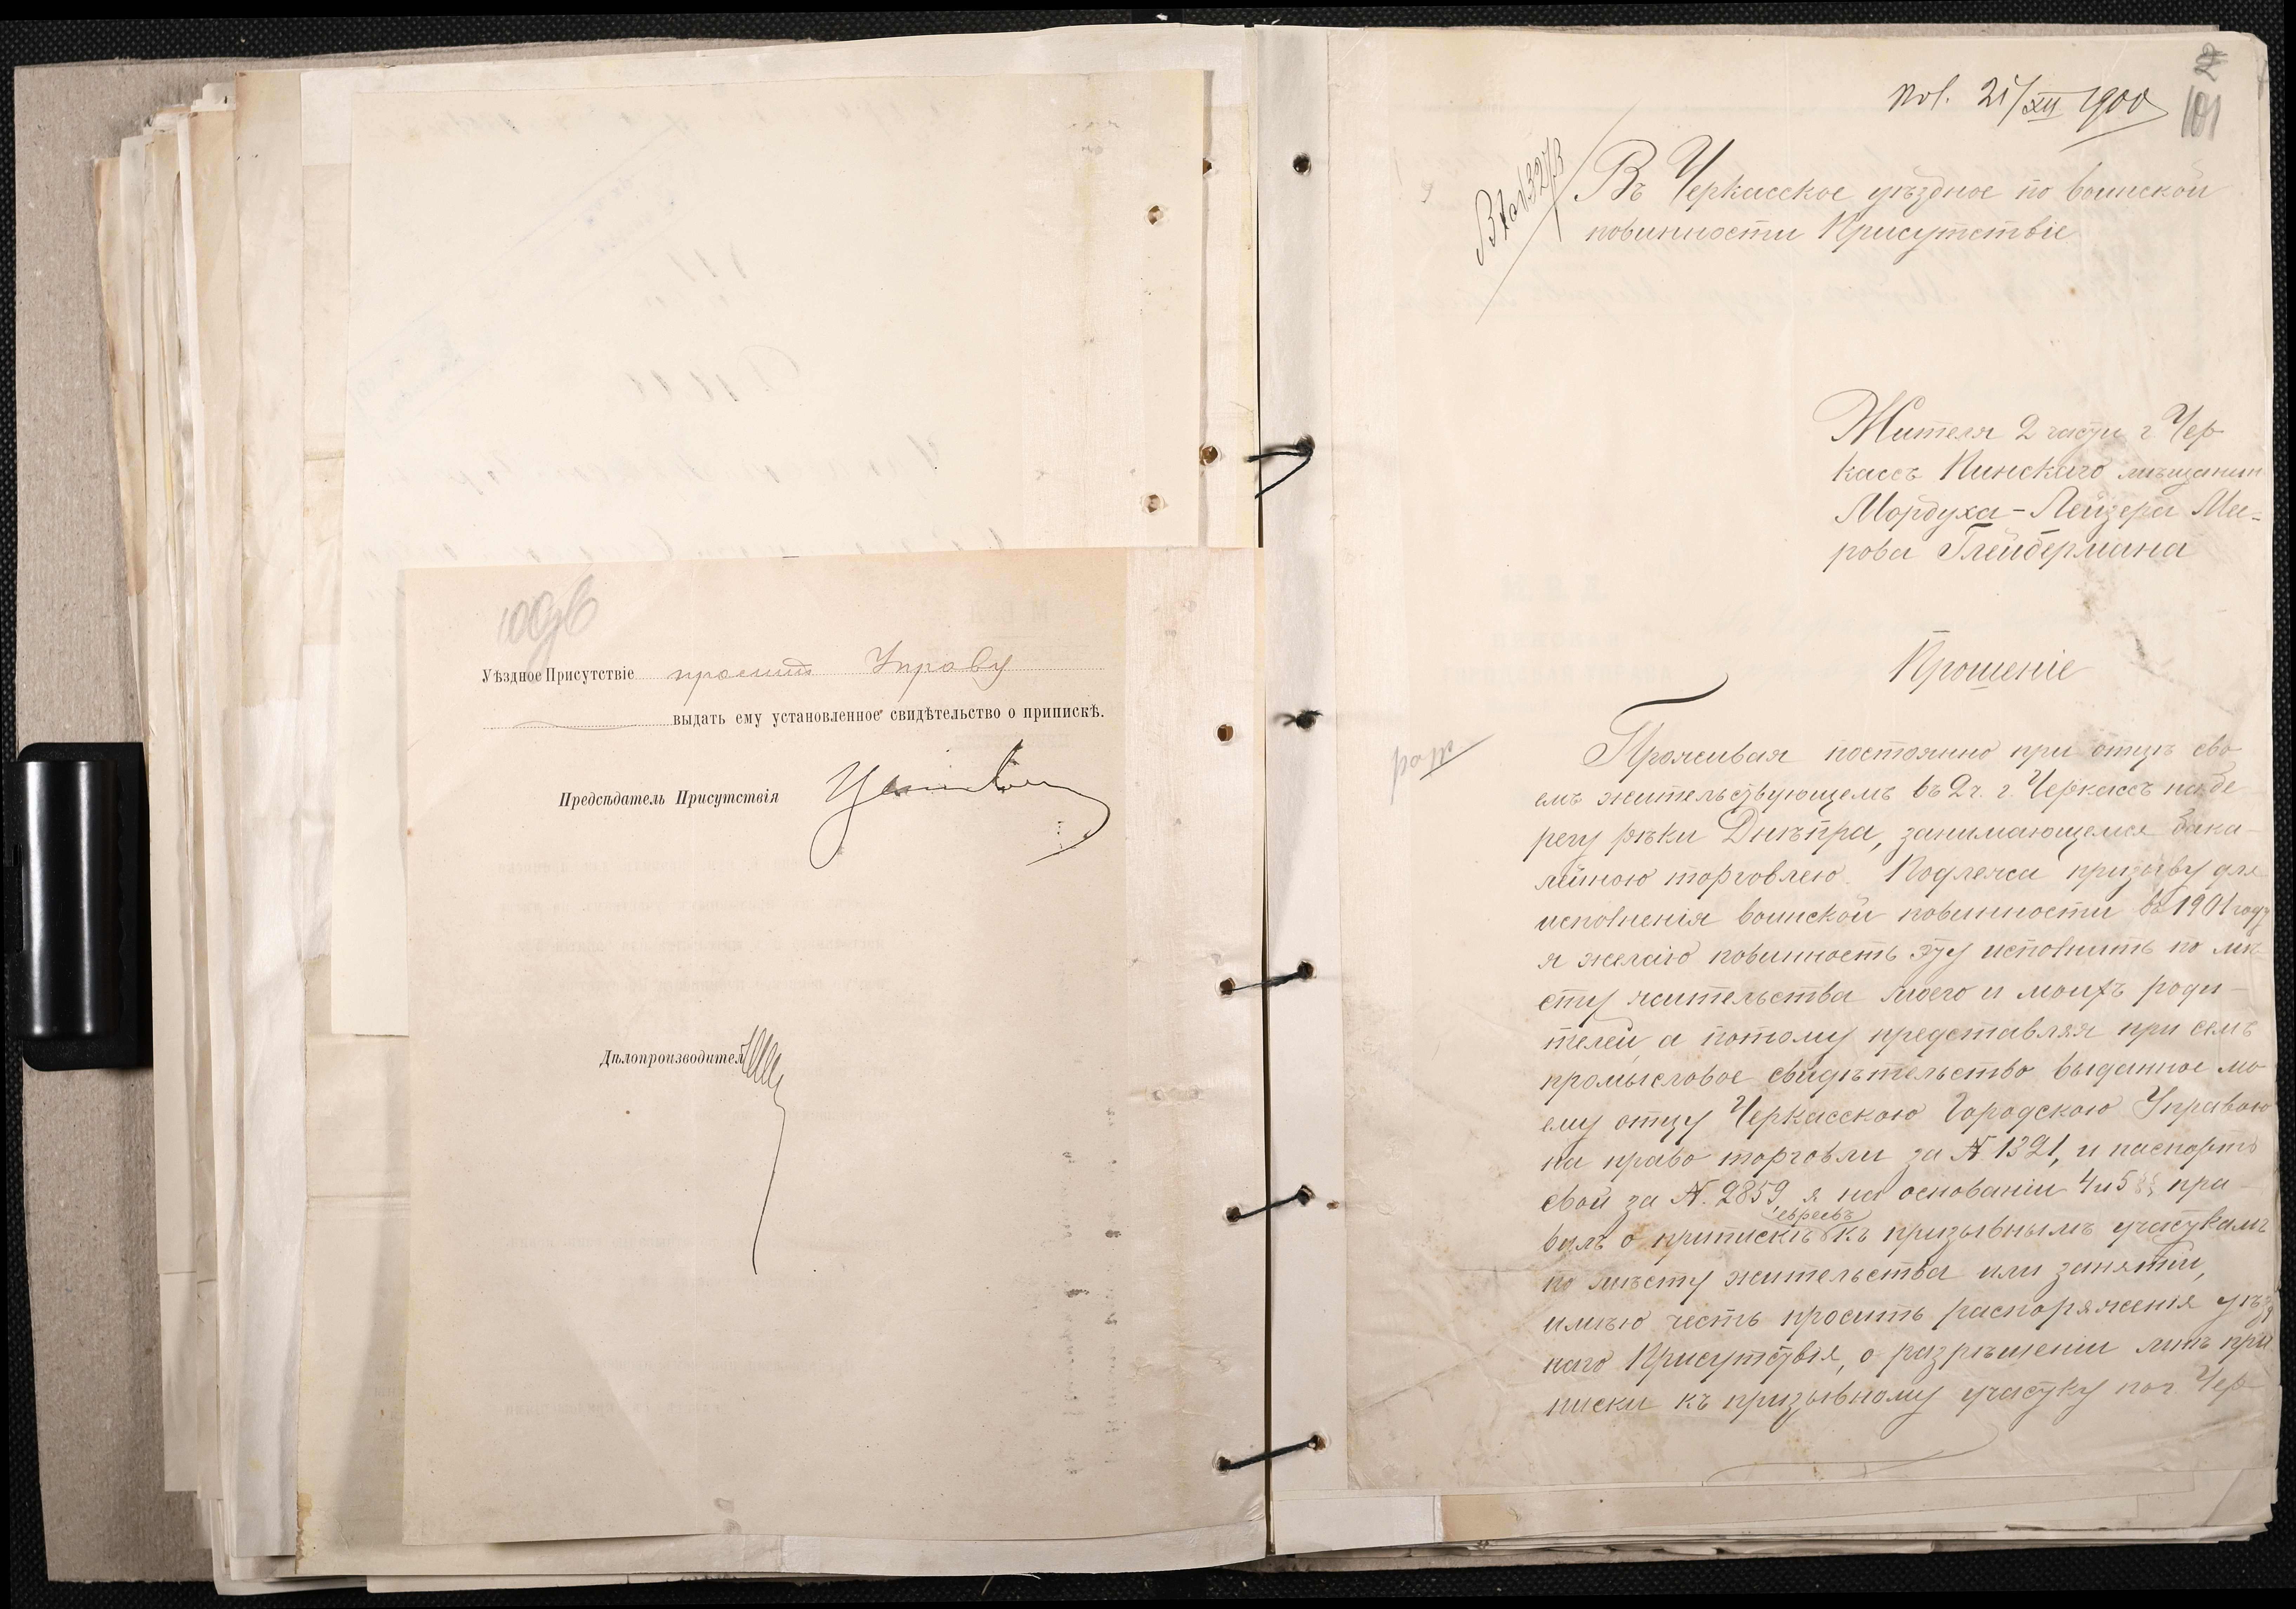 Уѣздное Присутствіе проситъ Управу
выдать ему установленное свидѣтельство о припискѣ.
Предсѣдатель Присутствія
Дѣлопроизводитель
2
101
пол. 21/XII 1900
Въ Черкасское уѣздное по воинской
повинности Присутствіе
Жителя 2 части г Чер
кассъ Пинскаго мѣщанин
Мордуха-Лейзера Ме-
рова Глейбермана
Прошеніе
Проживая постоянно при отцѣ сво
емъ жительствующемъ въ 2 ч. г. Черкассъ на бе
регу рѣки Днѣпра, занимающемся бака-
лейною торговлею. Подлежа призыву для
исполненія воинской повинности въ 1901 году
я желаю повинность эту исполнить по мѣ
сту жительства моего и моихъ роди-
телей, а потому представляя при семъ
промысловое свидѣтельство выданное мо
ему отцу Черкасскою Городскою Управою
на право торговли за № 1321, и паспортъ
свой за №. 2859, я на основаніи 4 и 5 §§ пра-
евреевъ
вилъ о припискѣ къ призывнымъ участкамъ
по мѣсту жительства или занятій,
имѣю честь просить распоряженія уѣзд
наго Присутствія, о разрѣшеніи мнѣ при
писки къ призывному участку по г Чер